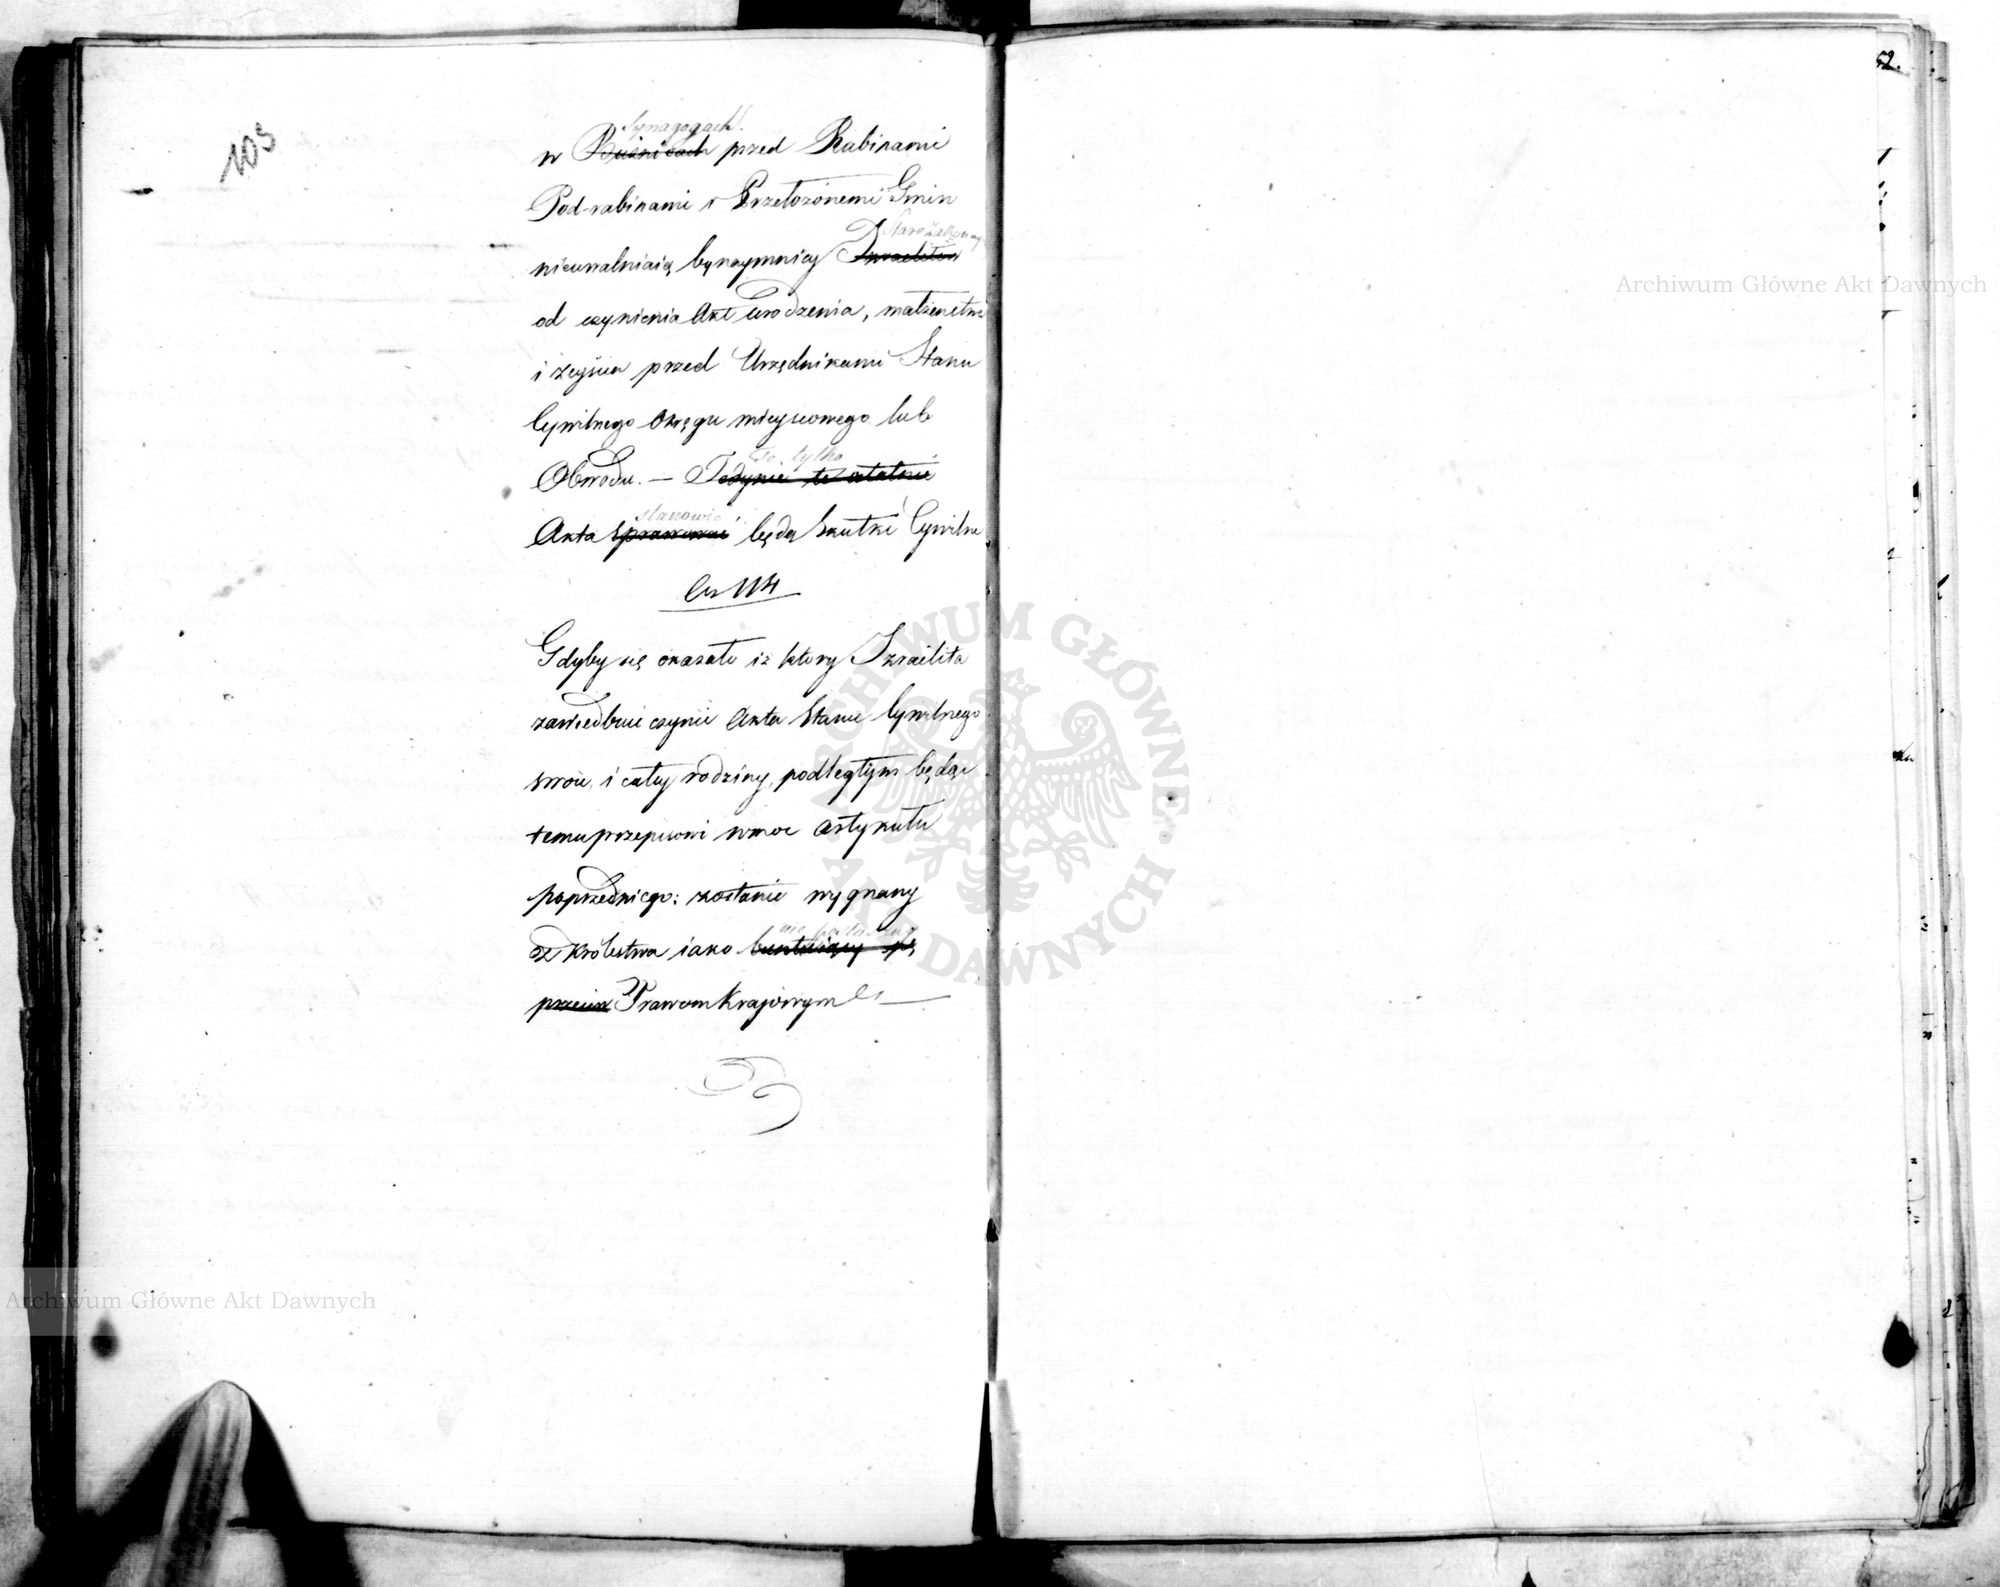 103
52.
Synagogach
w Bużnicach przed Rabinami
Pod-rabinami i Przełożonemi Gmin
Starozakonny
nieuwalniaią bynaymniey Izraelitów
od czynienia Akt urodzenia, małżeństwa
i zeyścia przed Urzędnikami Stanu
Cywilnego Okręgu mieyscowego lub
te tylko
Obwodu. — Jedynie te ostatnie
stanowić
Akta sprawować będą skutki Cywilne
114
Gdyby się okazało iż który Izraelita
zaniedbuie czynić Akta Stanu Cywilnego
swoie, i całey rodziny, podległym będąc
temu przepisowi w moc artykułu
poprzedniego: zostanie wygnany
z Królestwa iako buntuiący się
przeciw Prawom Krajowym
Archiwum Główne Akt Dawnych
Archiwum Główne Akt Dawnych
ARCHIWUM GŁÓWNE AKT DAWNYCH